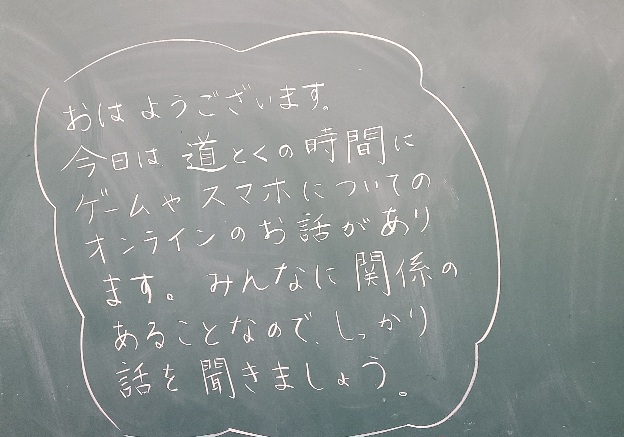 おはようございます。
今日は道とくの時間に
ゲームやスマホについての
オンラインのお話があり
ます。みんなに関係の
あることなので、しっかり
話を聞きましょう。